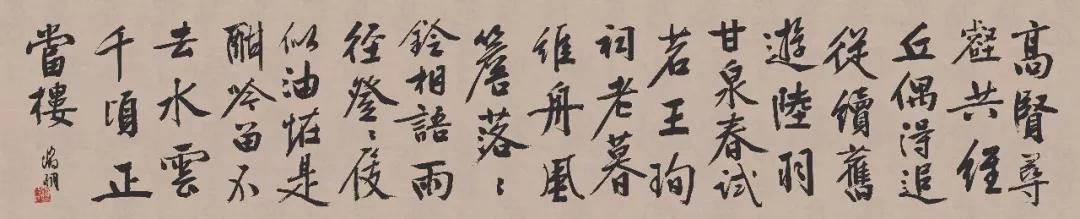 高賢尋
壑共經
丘偶得追
從續舊
遊陸羽
甘泉春試
茗王珣
祠老暮
維舟風
簷落〻
鈴相語雨
徑登〻屐
似油恠是
酣吟留不
去水雲
千頃正
當樓
徵明